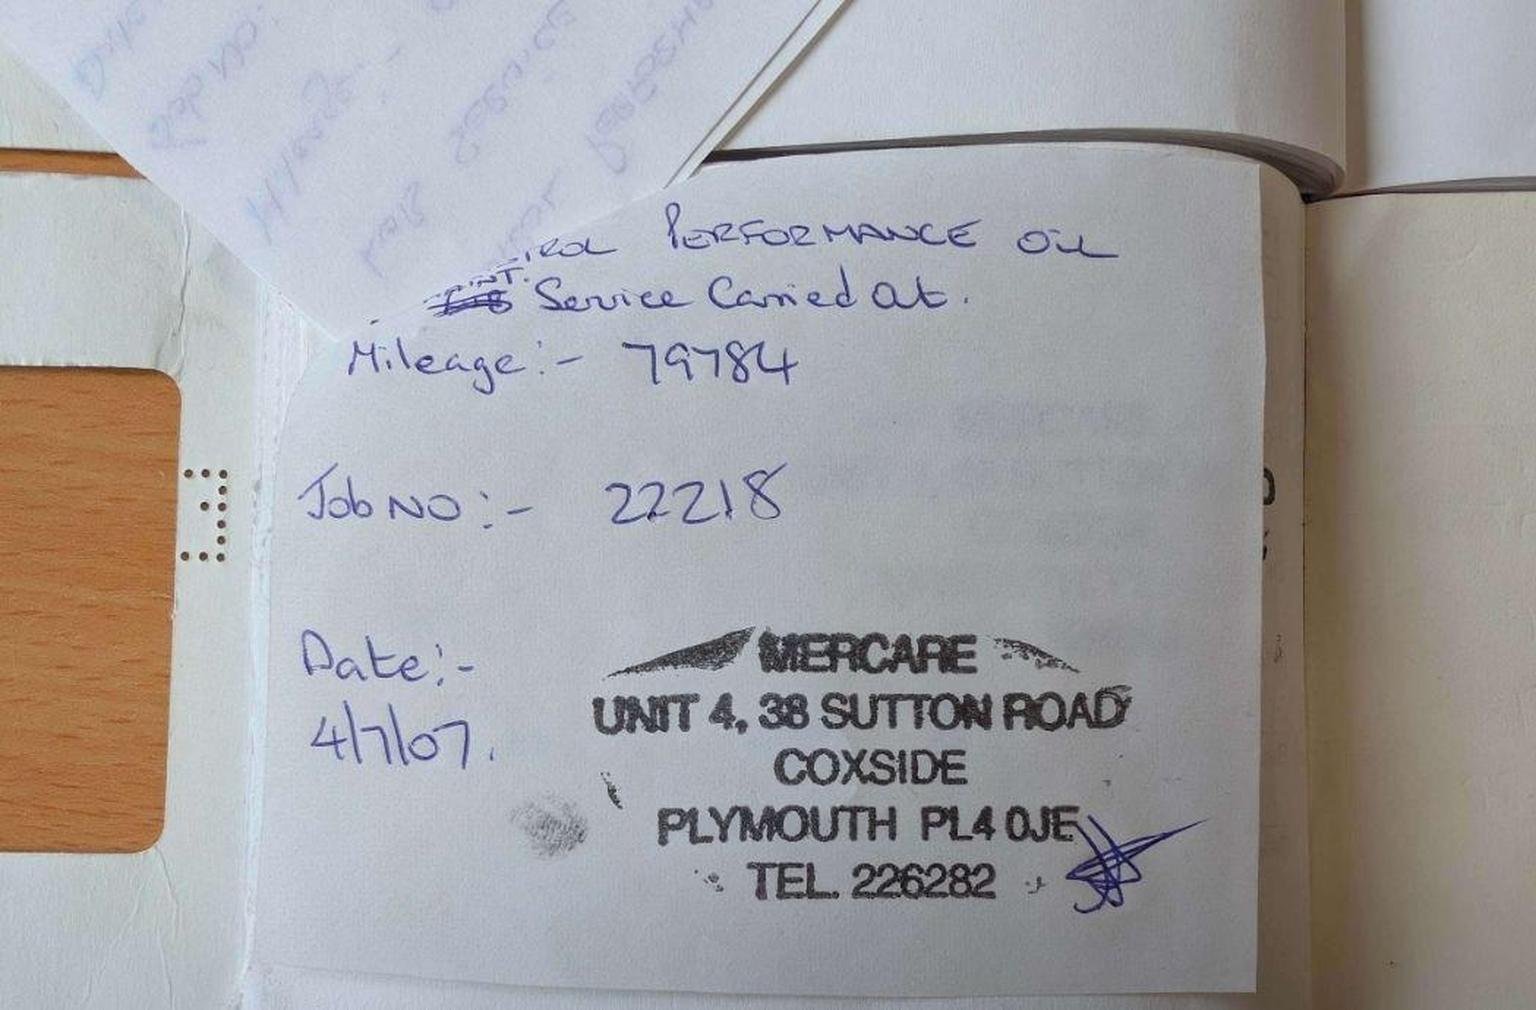 PERFORMANCE OIL
Service Carried at.
Mileage:- 79784
Job NO:- 22218
Date:-
4/7/07.
MERCARE
UNIT 4, 38 SUTTON ROAD
COXSIDE
PLYMOUTH PL4 0JE
TEL. 226282